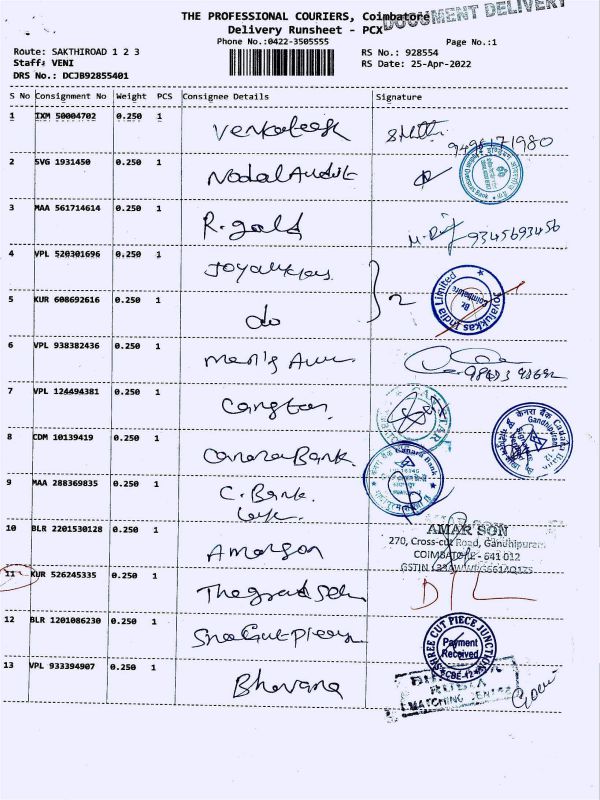 DOCUMENT DELIVERY
THE PROFESSIONAL COURIERS, Coimbatore
Delivery Runsheet - PCX
Phone No.:0422-3505555
Page No.:1
Route: SAKTHIROAD 1 2 3
RS No.: 928554
Staff: VENI
RS Date: 25-Apr-2022
DRS No.: DCJB92855401
S No Consignment No Weight PCS Consignee Details Signature
1 IXM 50004702 0.250 1 Venkatesh
9496171980
2 SVG 1931450 0.250 1 Nodal Audit
3 MAA 561714614 0.250 1 R. gold 9345693456
4 VPL 520301696 0.250 1 Joyalukkas
Joyalukkas India Limited
Coimbatore
2
5 KUR 608692616 0.250 1 do
6 VPL 938382436 0.250 1 men's
7 VPL 124494381 0.250 1
8 CDM 10139419 0.250 1 Canara Bank
केनरा बैंक Canara Bank
Gandhipuram
केनरा बैंक Canara Bank
9 MAA 288369835 0.250 1 C. Bank
10 BLR 2201530128 0.250 1 Amarson
AMAR SON
270, Cross-cut Road, Gandhipuram
COIMBATORE - 641 012
GSTIN
11 KUR 526245335 0.250 1 The grand D/L
12 BLR 1201086230 0.250 1 Shree Cut Piece
SHREE CUT PIECE JUNCTION
Payment
Received
CBE-12
13 VPL 933394907 0.250 1 Bhavana
RUBIA
MATCHING CENTRE